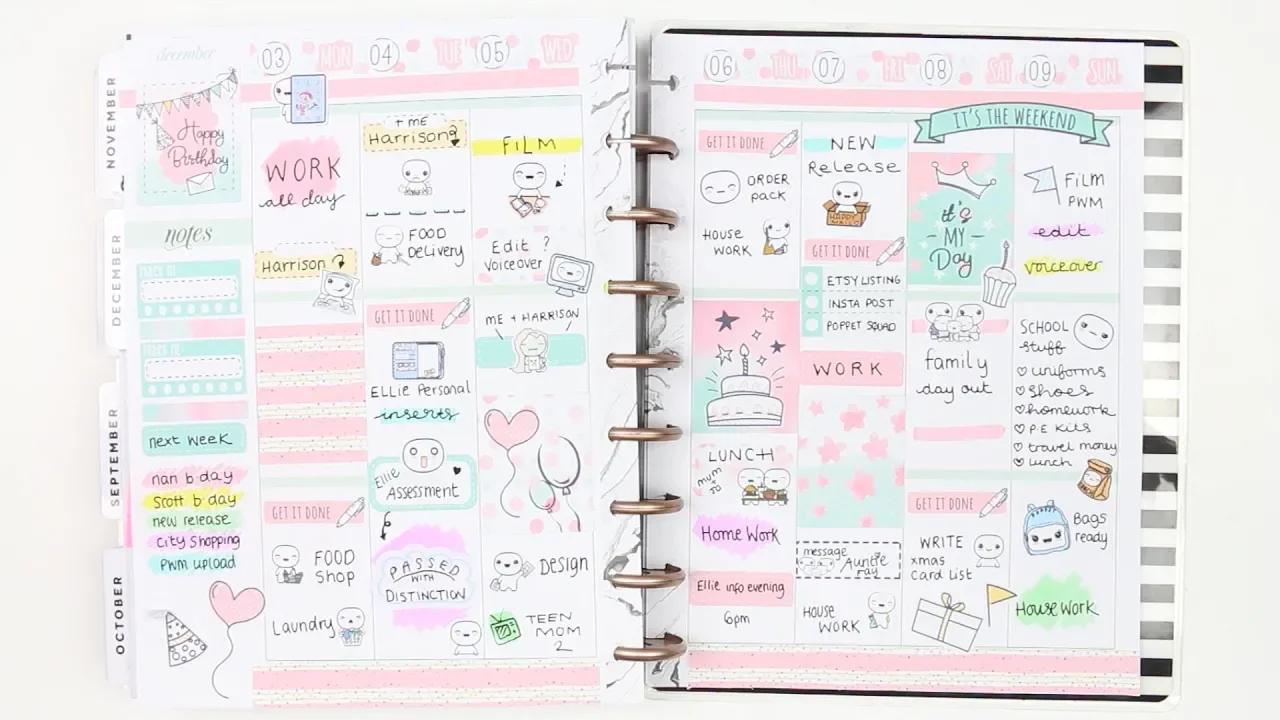 NOVEMBER
DECEMBER
SEPTEMBER
OCTOBER
december
Happy
Birthday
notes
next week
nan b day
Scott b day
new release
City Shopping
PWM upload
03 MON
WORK
all day
Harrison
GET IT DONE
FOOD
SHOP
Laundry
04 TUE
+ ME
Harrison
FOOD
DELIVERY
GET IT DONE
ELLIE Personal
inserts
Ellie
ASSESSMENT
PASSED
WITH
DISTINCTION
05 WED
FILM
Edit ?
Voiceover
ME + HARRISON
DESIGN
TEEN
MOM
2
06 THU
GET IT DONE
ORDER
pack
HOUSE
WORK
LUNCH
mum
+ JO
Home Work
Ellie info evening
6pm
07 FRI
NEW
Release
HAPPY
MAIL
GET IT DONE
ETSY LISTING
INSTA POST
POPPET SQUAD
WORK
message
Auntie
HOUSE
WORK
IT'S THE WEEKEND
08 SAT
it's
MY
Day
family
day out
GET IT DONE
WRITE
xmas
card list
09 SUN
FILM
PWM
edit
voiceover
SCHOOL
stuff
uniforms
shoes
homework
P.E KITS
travel money
lunch
BAGS
ready
HOUSE WORK